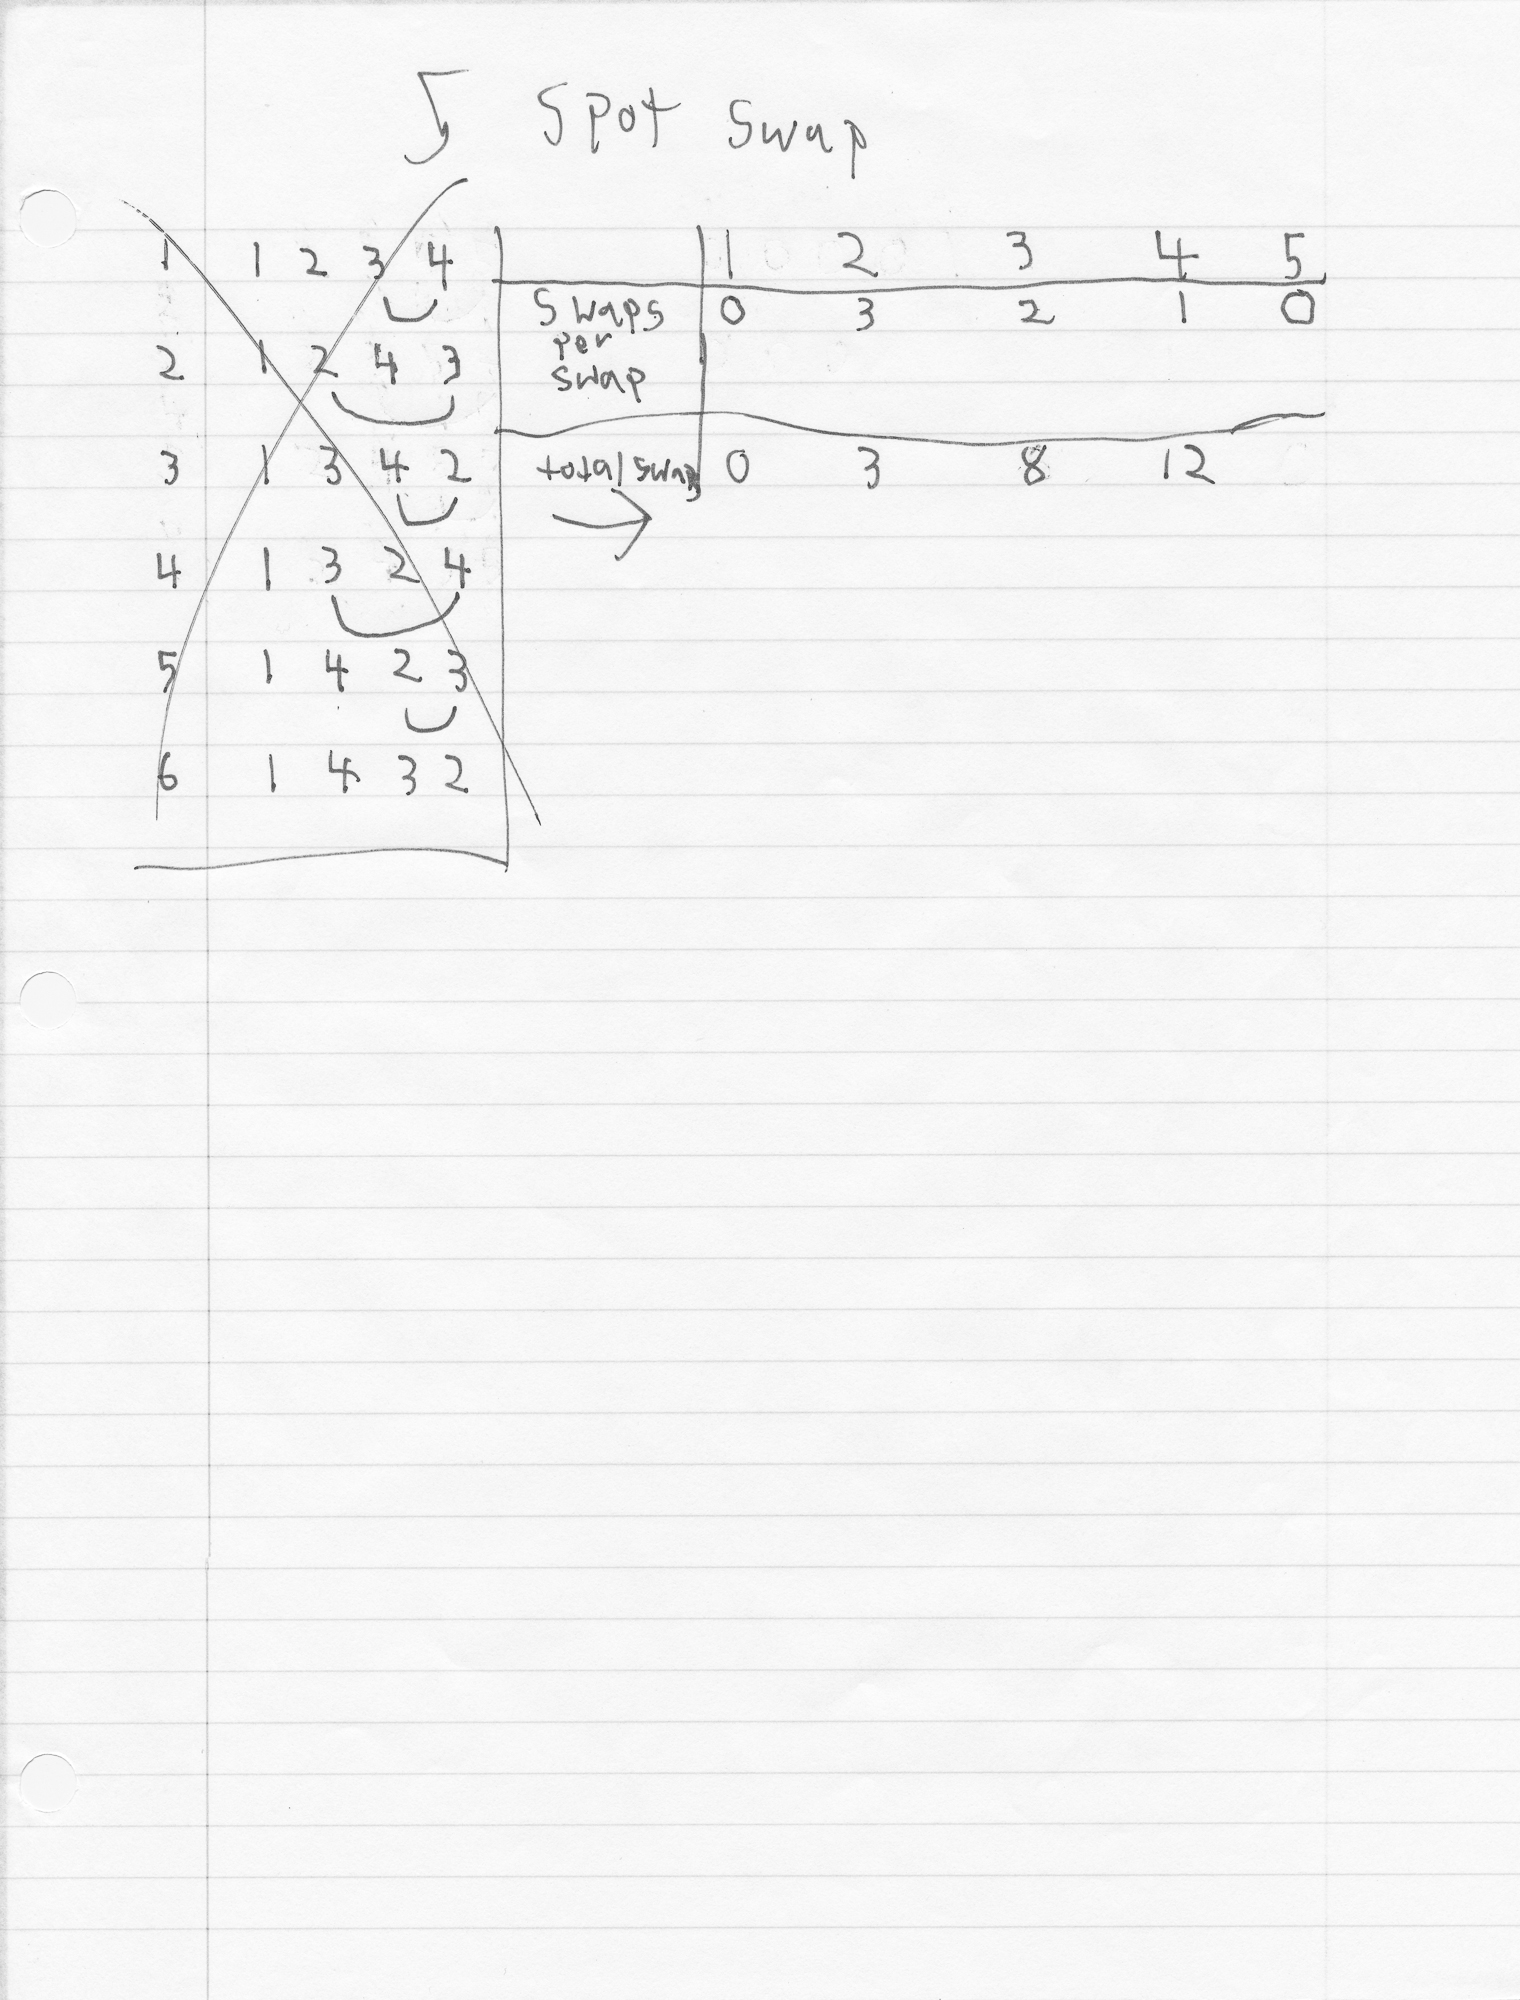 5 Spot Swap
1 1 2 3 4
2 1 2 4 3
3 1 3 4 2
4 1 3 2 4
5 1 4 2 3
6 1 4 3 2
1 2 3 4 5
Swaps per swap 0 3 2 1 0
total swaps 0 3 8 12